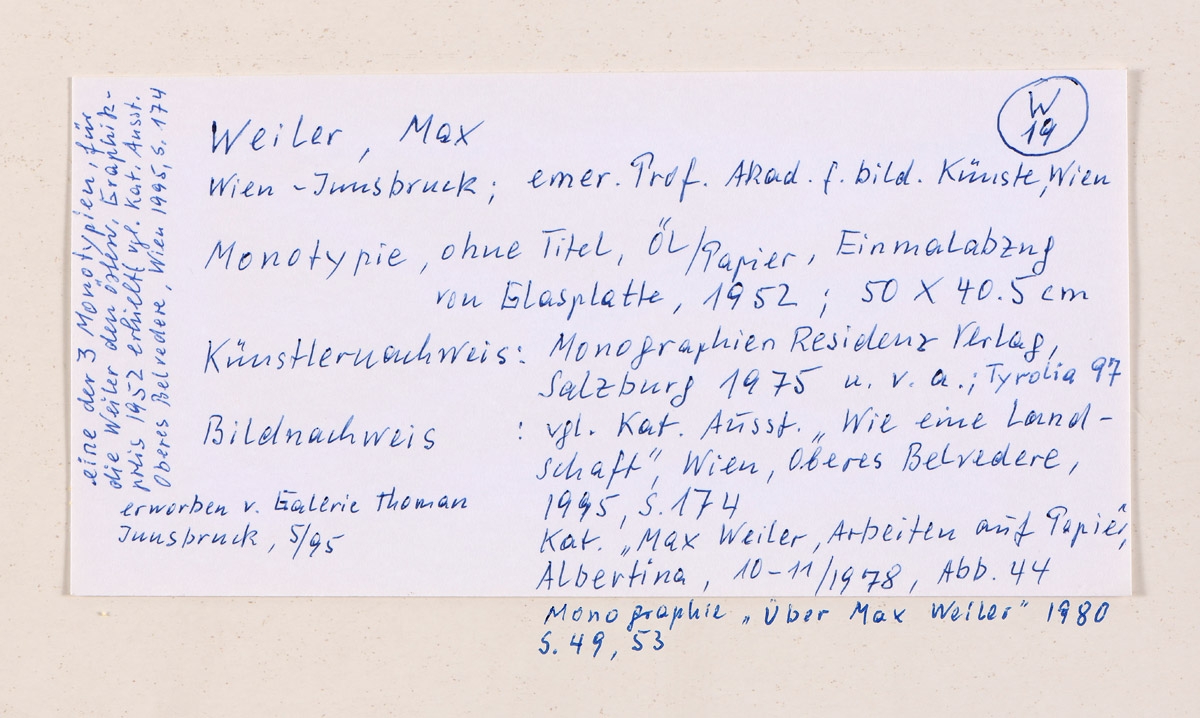 W
19
Weiler, Max
Wien - Innsbruck; emer. Prof. Akad. f. bild. Künste, Wien
Monotypie, ohne Titel, Öl/Papier, Einmalabzug
von Glasplatte, 1952; 50 X 40.5 cm
Künstlernachweis: Monographien Residenz Verlag,
Salzburg 1975 u. v. a.; Tyrolia 97
Bildnachweis : vgl. Kat. Ausst. „Wie eine Land-
schaft", Wien, Oberes Belvedere,
1995, S. 174
Kat. „Max Weiler, Arbeiten auf Papier",
Albertina, 10-11/1978, Abb. 44
Monographie „Über Max Weiler" 1980
S. 49, 53
erworben v. Galerie Thoman
Innsbruck, 5/95
eine der 3 Monotypien, für
die Weiler den österr. Graphik-
preis 1952 erhielt (vgl. Kat. Ausst.
Oberes Belvedere, Wien 1995, S. 174